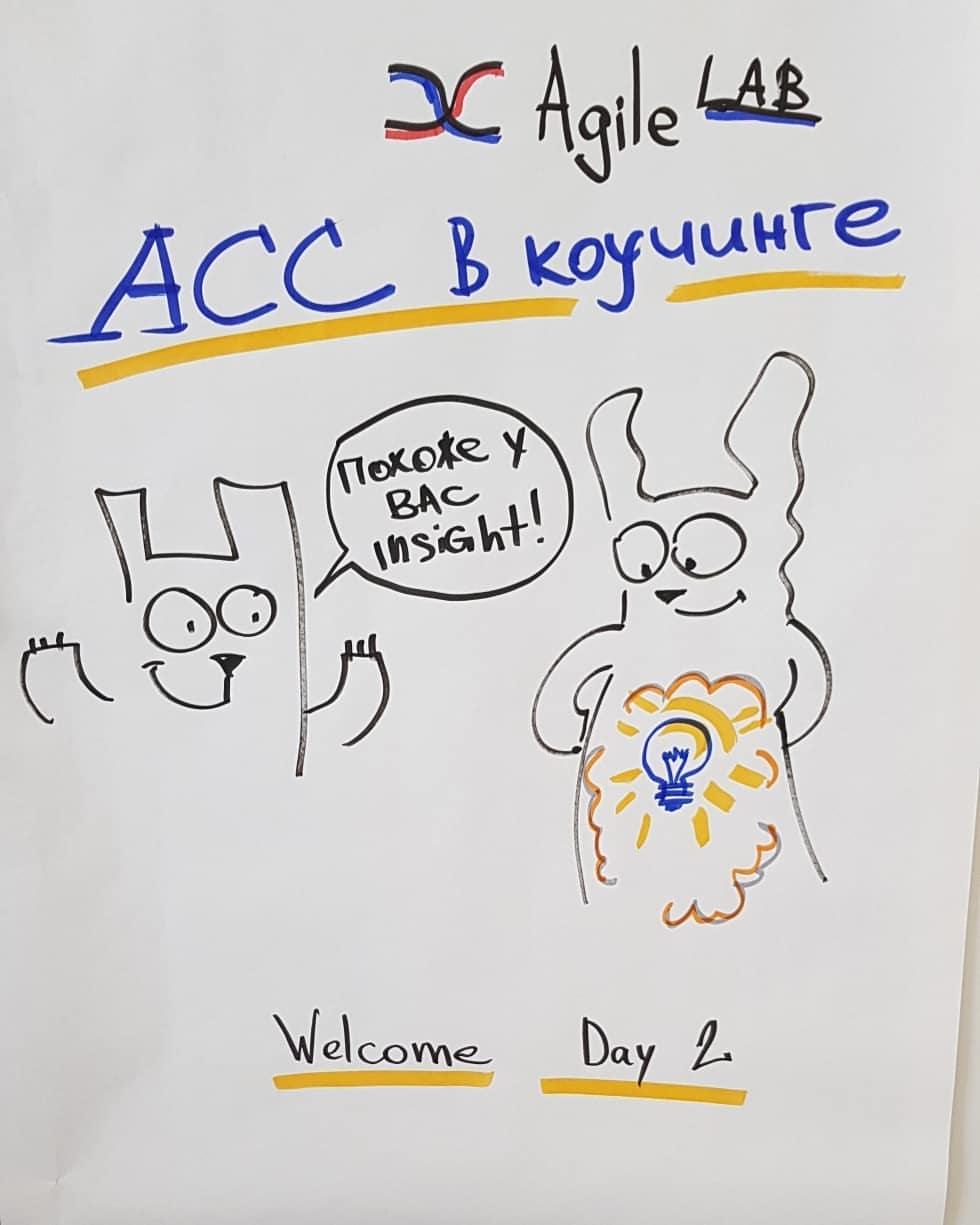 Agile LAB
ACC в коучинге
Похоже у
ВАС
insight!
Welcome Day 2